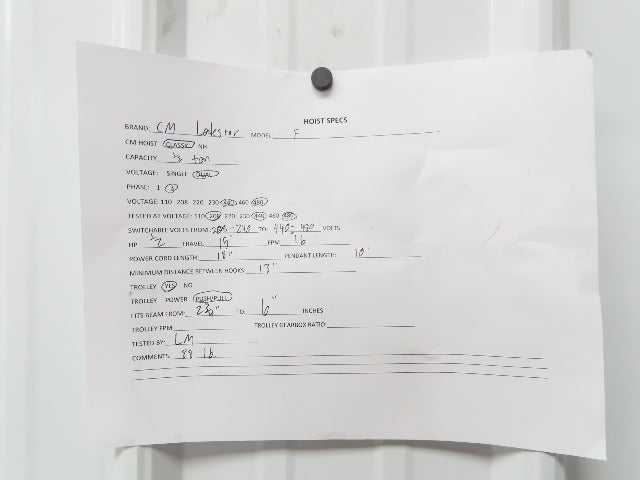 HOIST SPECS
BRAND: CM Lodestar MODEL: F
CM HOIST CLASSIC NH
CAPACITY 1/2 ton
VOLTAGE: SINGLE DUAL
PHASE: 1 3
VOLTAGE 110 208 220 230 440 460 480
TESTED AT VOLTAGE: 110 208 220 230 440 460 480
SWITCHABLE VOLTS FROM: TO: VOLTS
HP 1/2 TRAVEL 15' FPM 16
POWER CORD LENGTH: 18" PENDANT LENGTH: 10'
MINIMUM DISTANCE BETWEEN HOOKS 13"
TROLLEY YES NO
TROLLEY POWER PUSH/PULL
FITS BEAM FROM: TO: 6" INCHES
TROLLEY FPM TROLLEY GEARBOX RATIO:
TESTED BY: LM
COMMENTS 89 lb